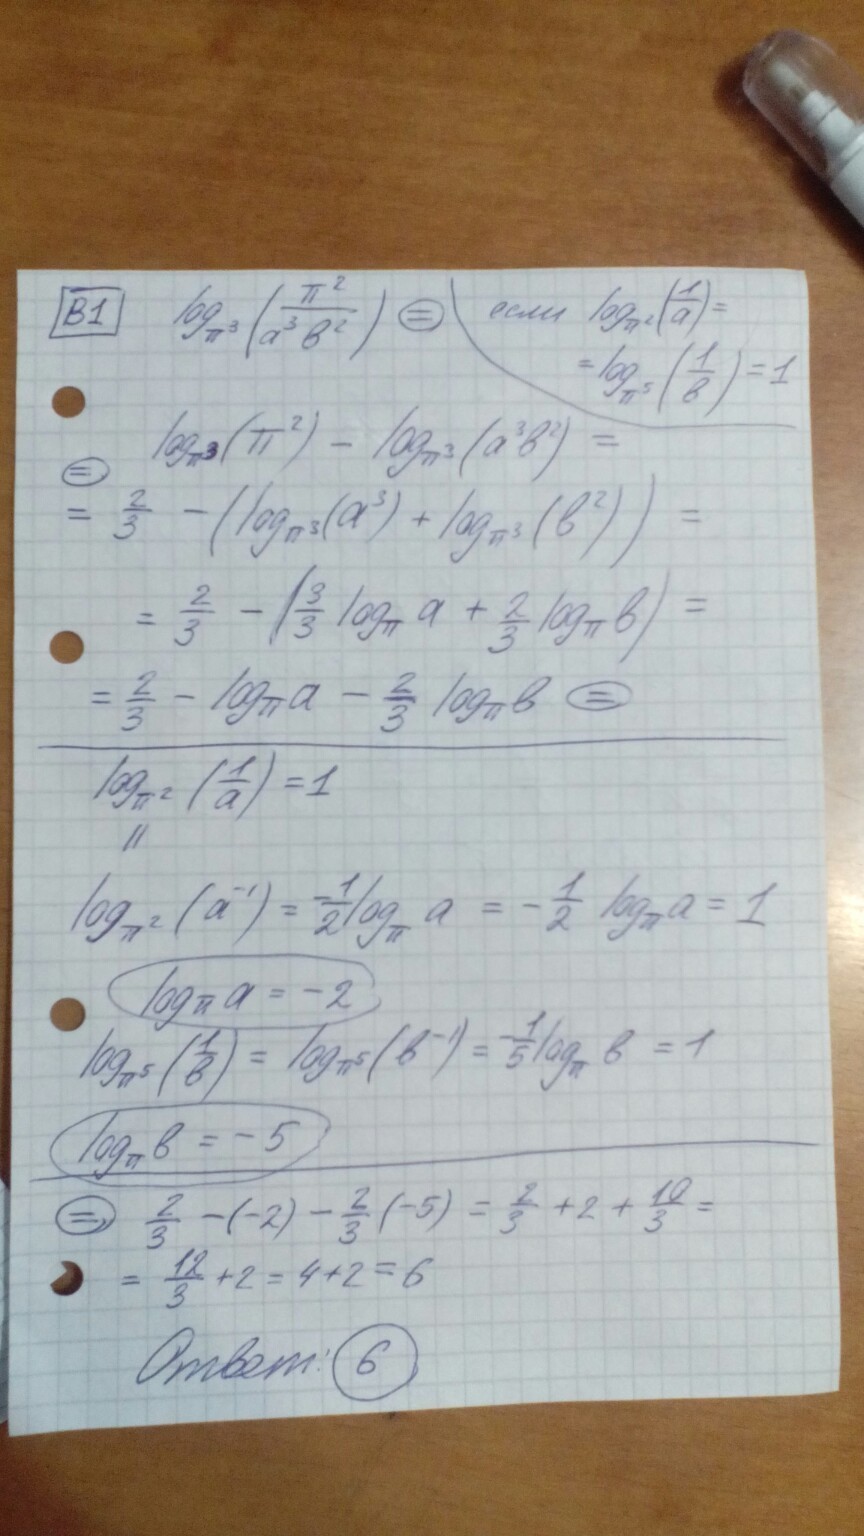 B1 log_π³(π²/(a³b²)) (=) если log_π²(1/a) =
= log_π⁵(1/b) = 1
(=) log_π³(π²) − log_π³(a³b²) =
= 2/3 − (log_π³(a³) + log_π³(b²)) =
= 2/3 − (3/3 log_π a + 2/3 log_π b) =
= 2/3 − log_π a − 2/3 log_π b (=)
log_π²(1/a) = 1
॥
log_π²(a⁻¹) = -1/2 log_π a = −1/2 log_π a = 1
log_π a = −2
log_π⁵(1/b) = log_π⁵(b⁻¹) = -1/5 log_π b = 1
log_π b = −5
(=) 2/3 −(−2) − 2/3 (−5) = 2/3 + 2 + 10/3 =
= 12/3 + 2 = 4+2 = 6
Ответ: 6